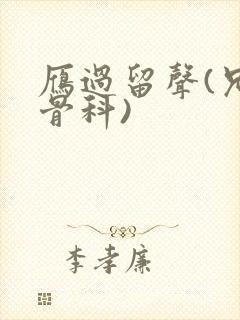 雁過留聲(兄
骨科)
李孝廉